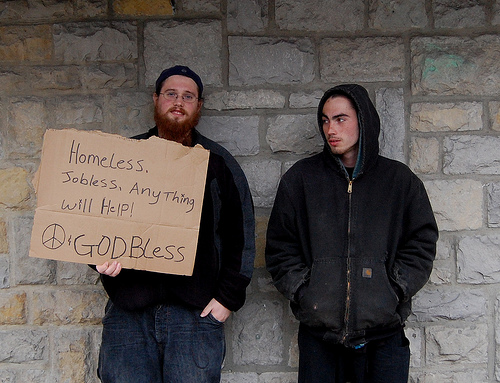 Homeless,
Jobless, AnyThing
will Help!
☮ & GODBless